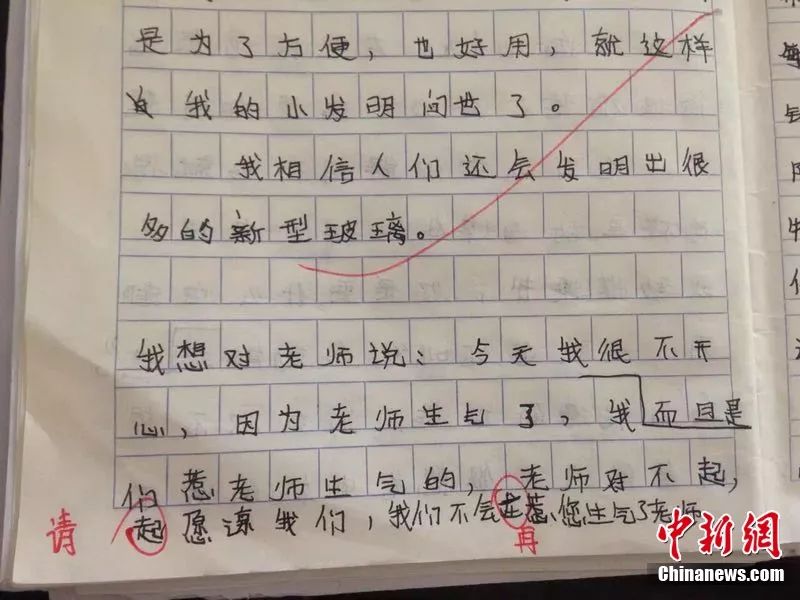 是为了方便，也好用，就这样
我的小发明问世了。
我相信人们还会发明出很
多的新型玻璃。
我想对老师说：今天我很不开
心，因为老师生气了，我而且是
们惹老师生气的，老师对不起，
请起愿谅我们，我们不会在惹您生气了老师
再
中新网
Chinanews.com